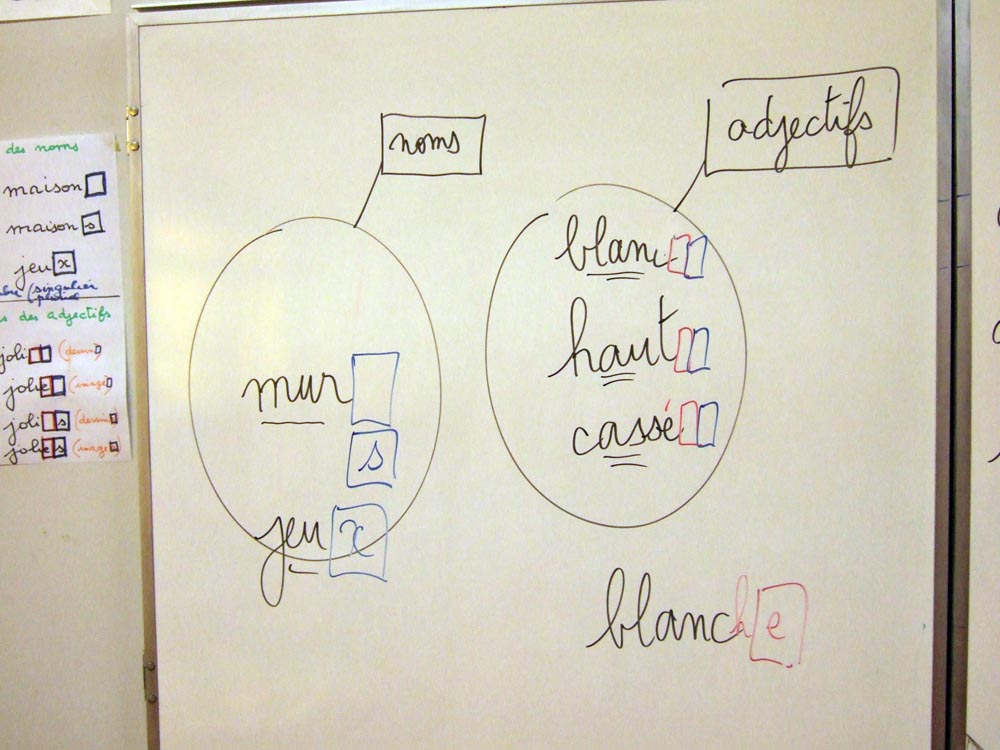 des noms
maison
maison s
jeu x
(singulier
pluriel
des adjectifs
joli
jolie
joli s
jolie s
noms
mur
s
jeu x
adjectifs
blanc
haut
cassé
blanche